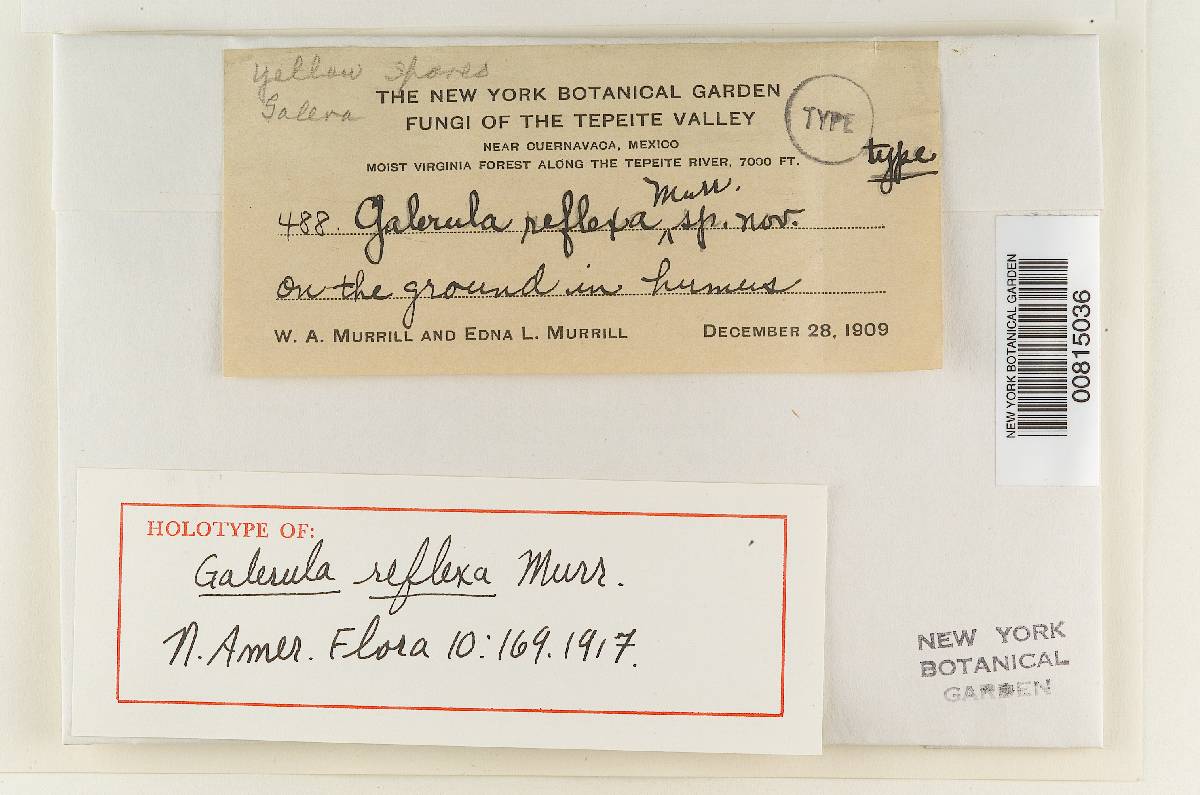 Yellow spores
Galera
THE NEW YORK BOTANICAL GARDEN
FUNGI OF THE TEPEITE VALLEY
NEAR CUERNAVACA, MEXICO
MOIST VIRGINIA FOREST ALONG THE TEPEITE RIVER, 7000 FT.
TYPE
type
488. Galerula reflexa Murr. ^ sp. nov.
on the ground in humus
W. A. MURRILL AND EDNA L. MURRILL DECEMBER 28, 1909
NEW YORK BOTANICAL GARDEN
00815036
HOLOTYPE OF:
Galerula reflexa Murr.
N. Amer. Flora 10:169. 1917.
NEW YORK
BOTANICAL
GARDEN